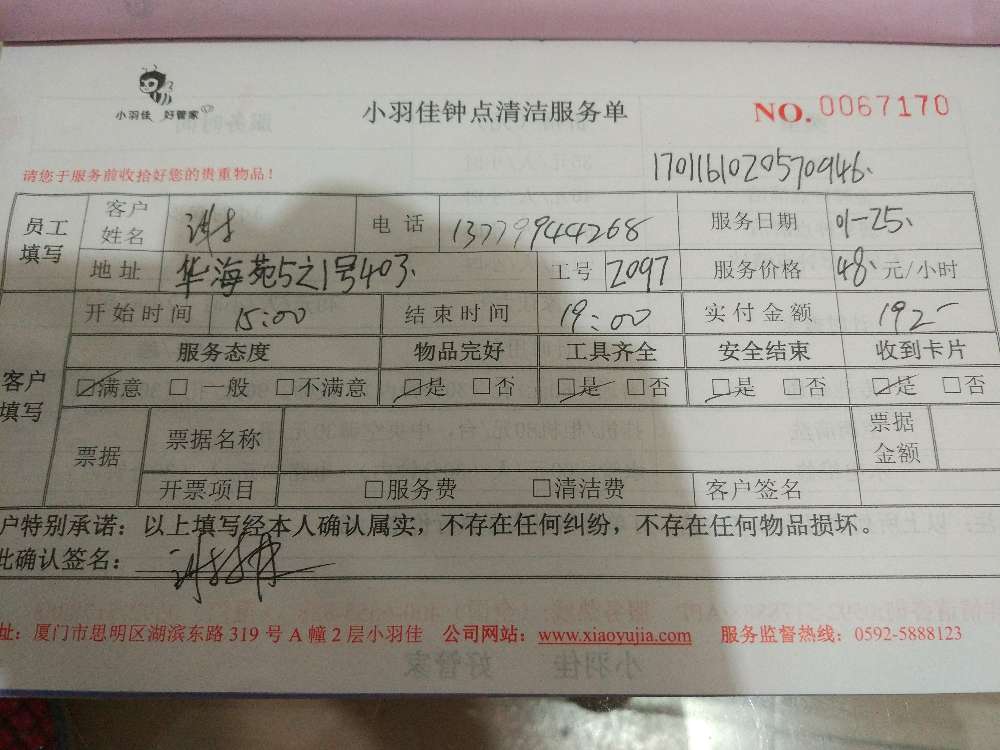 小羽佳 好管家
小羽佳钟点清洁服务单
NO.0067170
1701161020570946.
请您于服务前收拾好您的贵重物品！
员工填写 客户姓名 电话 13779944268 服务日期 01-25.
地址 华海苑5之1号403. 工号 2097 服务价格 48.元/小时
开始时间 15:00 结束时间 19:00 实付金额 192-
客户填写 服务态度 物品完好 工具齐全 安全结束 收到卡片
☑满意 □一般 □不满意 ☑是 □否 ☑是 □否 ☑是 □否 ☑是 □否
票据 票据名称 票据金额
开票项目 □服务费 □清洁费 客户签名
户特别承诺：以上填写经本人确认属实，不存在任何纠纷，不存在任何物品损坏。
此确认签名：
址：厦门市思明区湖滨东路 319 号 A 幢 2 层小羽佳 公司网站：www.xiaoyujia.com 服务监督热线：0592-5888123